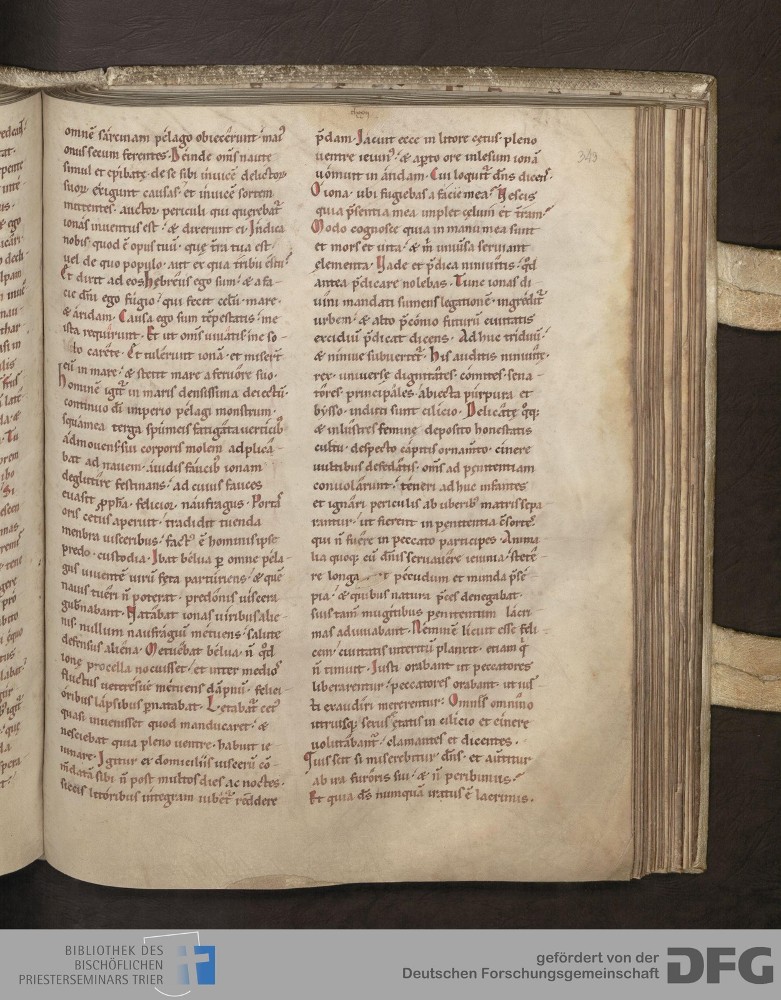 omnē sarcinam pelago obiecerunt· maiꝰ
onus secum ferentes· Deinde om̄s naute
simul et epibatę· de se sibi inuicē delictoꝝ
suoꝝ exigunt causas· et inuicē sortem
mittentes· auctor periculi qui querebat᷑
ionas inuentus est· & dixerunt ei· Indica
nobis quod ē opus tuū· que t̄ra tua est·
uel de quo populo· aut ex qua tribu es tu?
Et dixit ad eos· hebreus ego sum· & a fa-
cie dn̄i ego fugio· qui fecit celū· mare·
& aridam· Causa ego sum tēpestatis· me
ista requirunt· Et ut om̄s uiuatis· me so-
lo carete· Et tulerunt ionā· et miserunt
eū in mare· & stetit mare a feruore suo·
hominē igit᷑ in maris densissima deiectū·
continuo dī imperio pelagi monstrum·
squamea terga spumeis fatigata uerticibꝰ
admouens· sui corporis molem adplica-
bat ad nauem· auidis faucibꝰ ionam
deglutire festinans· ad cuius fauces
euasit ꝓph̄a· felicior naufragus· Porta
oris cetus aperuit· tradidit tuenda
menbra uisceribus· factꝰ ē hominis ipse
predo· custodia· Ibat belua ꝑ omne pela-
gus uiuentē uirū feta parturiens· & quē
nauis tueri n̄ poterat· predonis uiscera
gub̄nabant· Natabat ionas uiribus alie-
nis· nullum naufragiū metuens· salute
defensus aliena· Metuebat belua· n̄ qd̄
ionę procella nocuisset· et inter medios
fluctus ueteresue metuens dāpnū· felici
oribus lapsibus ꝑnatabat· Letabat᷑ cetꝰ
quasi inuenisset quod manducaret· &
nesciebat quia pleno uentre· habuit ie-
iunare· Igitur ex domiciliis uiscerū cō-
m̄data sibi n̄ post multos dies ac noctes·
siccis litoribus integram iubet᷑ reddere
p̄dam· Iacuit ecce in litore cetus· pleno
uentre ieiunꝰ· & aperto ore inlesum ionā
uomuit in aridam· Cui loquit᷑ dn̄s dicens·
O iona· ubi fugiebas a facie mea? Nescis
quia p̄sentia mea implet cęlum et terram?
Modo cognosce quia in manu mea sunt
et mors et uita· & m̄ uniūsa seruiunt
elementa· Uade et p̄dica niniuitis· qd̄
antea p̄dicare nolebas· Tunc ionas di-
uini mandati sumens legationē· ingredit᷑
urbem· & alto p̄conio futurū ciuitatis
excidiū p̄dicat dicens· Ad huc triduū·
& niniue subuertet᷑· His auditis niniuitę·
rex· uniuerse dignitates· comites· sena-
tores· principales· abiecta purpura et
bysso· induti sunt cilicio· Delicate qq;
& inlustres femine· deposito honestatis
cultu· despecto capitis ornamto· cinere
uultibus defedatis· om̄s ad penitentiam
conuolarunt· teneri ad huc infantes
et ignari periculis ab uberibꝰ matris sepa-
rantur· ut fierent in penitentia cōsortes·
qui n̄ fuere in peccato participes· Anima-
lia quoq; eū dn̄is seruauere ieiunia· stete-
re longa pecudum et munda p̄se-
pia· & quibus natura p̄ces denegabat·
suis tam̄ mugitibus penitentum lacri-
mas adiuuabant· Neminē licuit esse feli-
cem· ciuitatis interitū planxit· etiam q̇
n̄ timuit· Iusti orabant ut peccatores
liberarentur· peccatores orabant· ut ius-
ti exaudiri mererentur· Omnis omnino
utriusq; sexus ętatis in cilicio et cinere
uolutabant᷑· clamantes et dicentes·
Quis scit si miserebitur dn̄s· et auertitur
ab ira furoris sui· & n̄ peribimus?
Et quia ds̄ numquā iratus ē lacrimis·
343
BIBLIOTHEK DES
BISCHÖFLICHEN
PRIESTERSEMINARS TRIER
gefördert von der
Deutschen Forschungsgemeinschaft
DFG